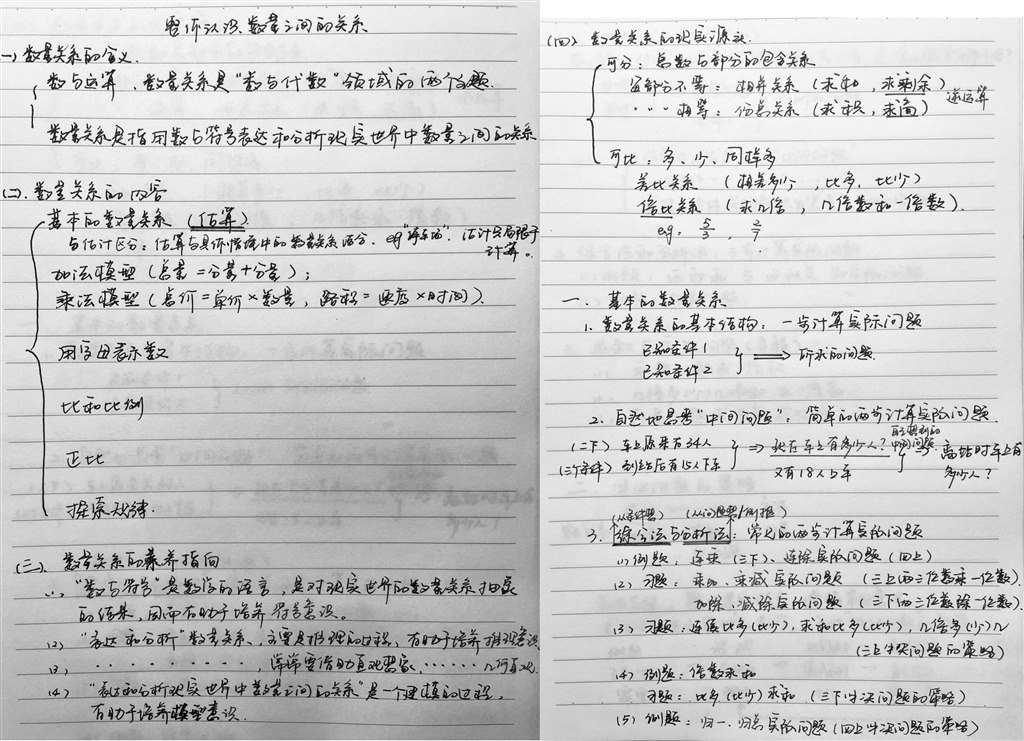 重新认识数量之间的关系
一)数量关系的含义.
数与运算、数量关系是“数与代数”领域的两个主题.
数量关系是指用数与符号表达和分析现实世界中数量之间的关系
(二).数量关系的内容
基本的数量关系 (估算)
与估计区分:估算与具体情境中的数量关系紧密. eg“ ”.估计只局限于
计算。
加法模型(总量=分量+分量);
乘法模型(总价=单价×数量,路程=速度×时间).
用字母表示数
比和比例
正比
探索规律.
(三).数量关系的素养指向
(1)“数与符号”是数学的语言,是对现实世界的数量关系抽象
的结果,因而有助于培养符号意识。
(2)“表达和分析”数量关系,主要是推理的过程,有助于培养推理意识
(3) ··········,常常要借助直观图象,······几何直观.
(4)“表达和分析现实世界中数量之间的关系”是一个建模的过程,
有助于培养模型意识.
(四) 数量关系的现实源头.
可分:总数与部分的包含关系
各部分不等:相并关系(求和,求剩余) 逆运算
·····相等:份总关系(求积,求商)
可比:多、少、同样多
差比关系 (相差多少,比多,比少)
倍比关系 (求几倍,几倍数和一倍数).
eg. 5/3, 2/7
一. 基本的数量关系
1. 数量关系的基本结构:一步计算实际问题
已知条件1
已知条件2 ⟹ 所求的问题.
2. 自然地思考“中间问题”:简单的两步计算实际问题.
(二下) 车上原来有34人
(三个条件) 到站后有15人下车 ⇒ 现在车上有多少人? 中间问题
又有18人上车 ⇒ 离站时车上有
多少人?
(从条件想) (从问题想/倒推)
3. 综合法与分析法:常见的两步计算实际问题
(1)例题:连乘(三下)、连除实际问题(四上)
(2)习题:乘加、乘减实际问题 (三上两三位数乘一位数)
加除、减除实际问题 (三下两三位数除一位数)
(3)习题:连续比多(比少),求和比多(比少),几倍多(少)几
(三上解决问题的策略)
(4)例题:倍数求和
习题:比多(比少)求和 (三下解决问题的策略)
(5)例题:归一、归总实际问题(四上解决问题的策略)